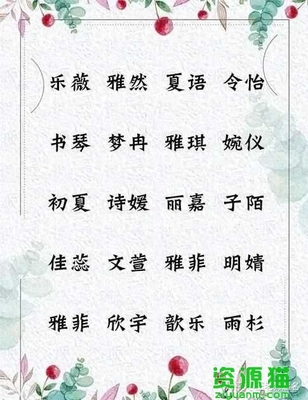 乐薇 雅然 夏语 令怡
书琴 梦冉 雅琪 婉仪
初夏 诗媛 丽嘉 子陌
佳蕊 文萱 雅菲 明婧
雅菲 欣宇 歆乐 雨杉
资源猫